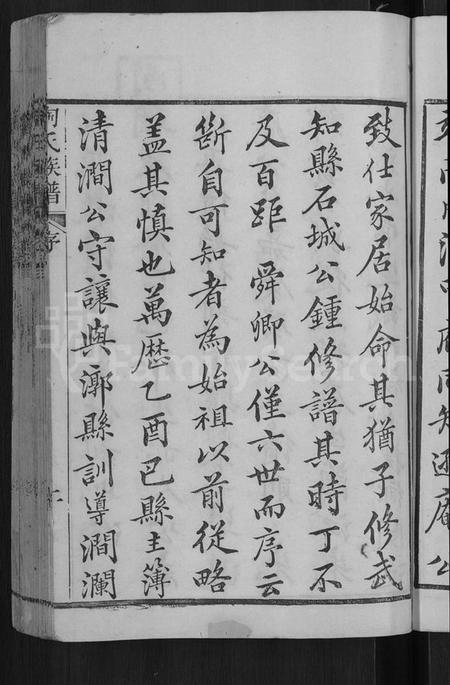 致仕家居始命其猶子修武
知縣石城公鍾修譜其時丁不
及百距 舜卿公僅六世而序云
斷自可知者為始祖以前從略
蓋其慎也萬歷乙酉巴縣主簿
清澗公守讓與鄜縣訓導澗瀾
陶氏族譜 序
FamilySearch